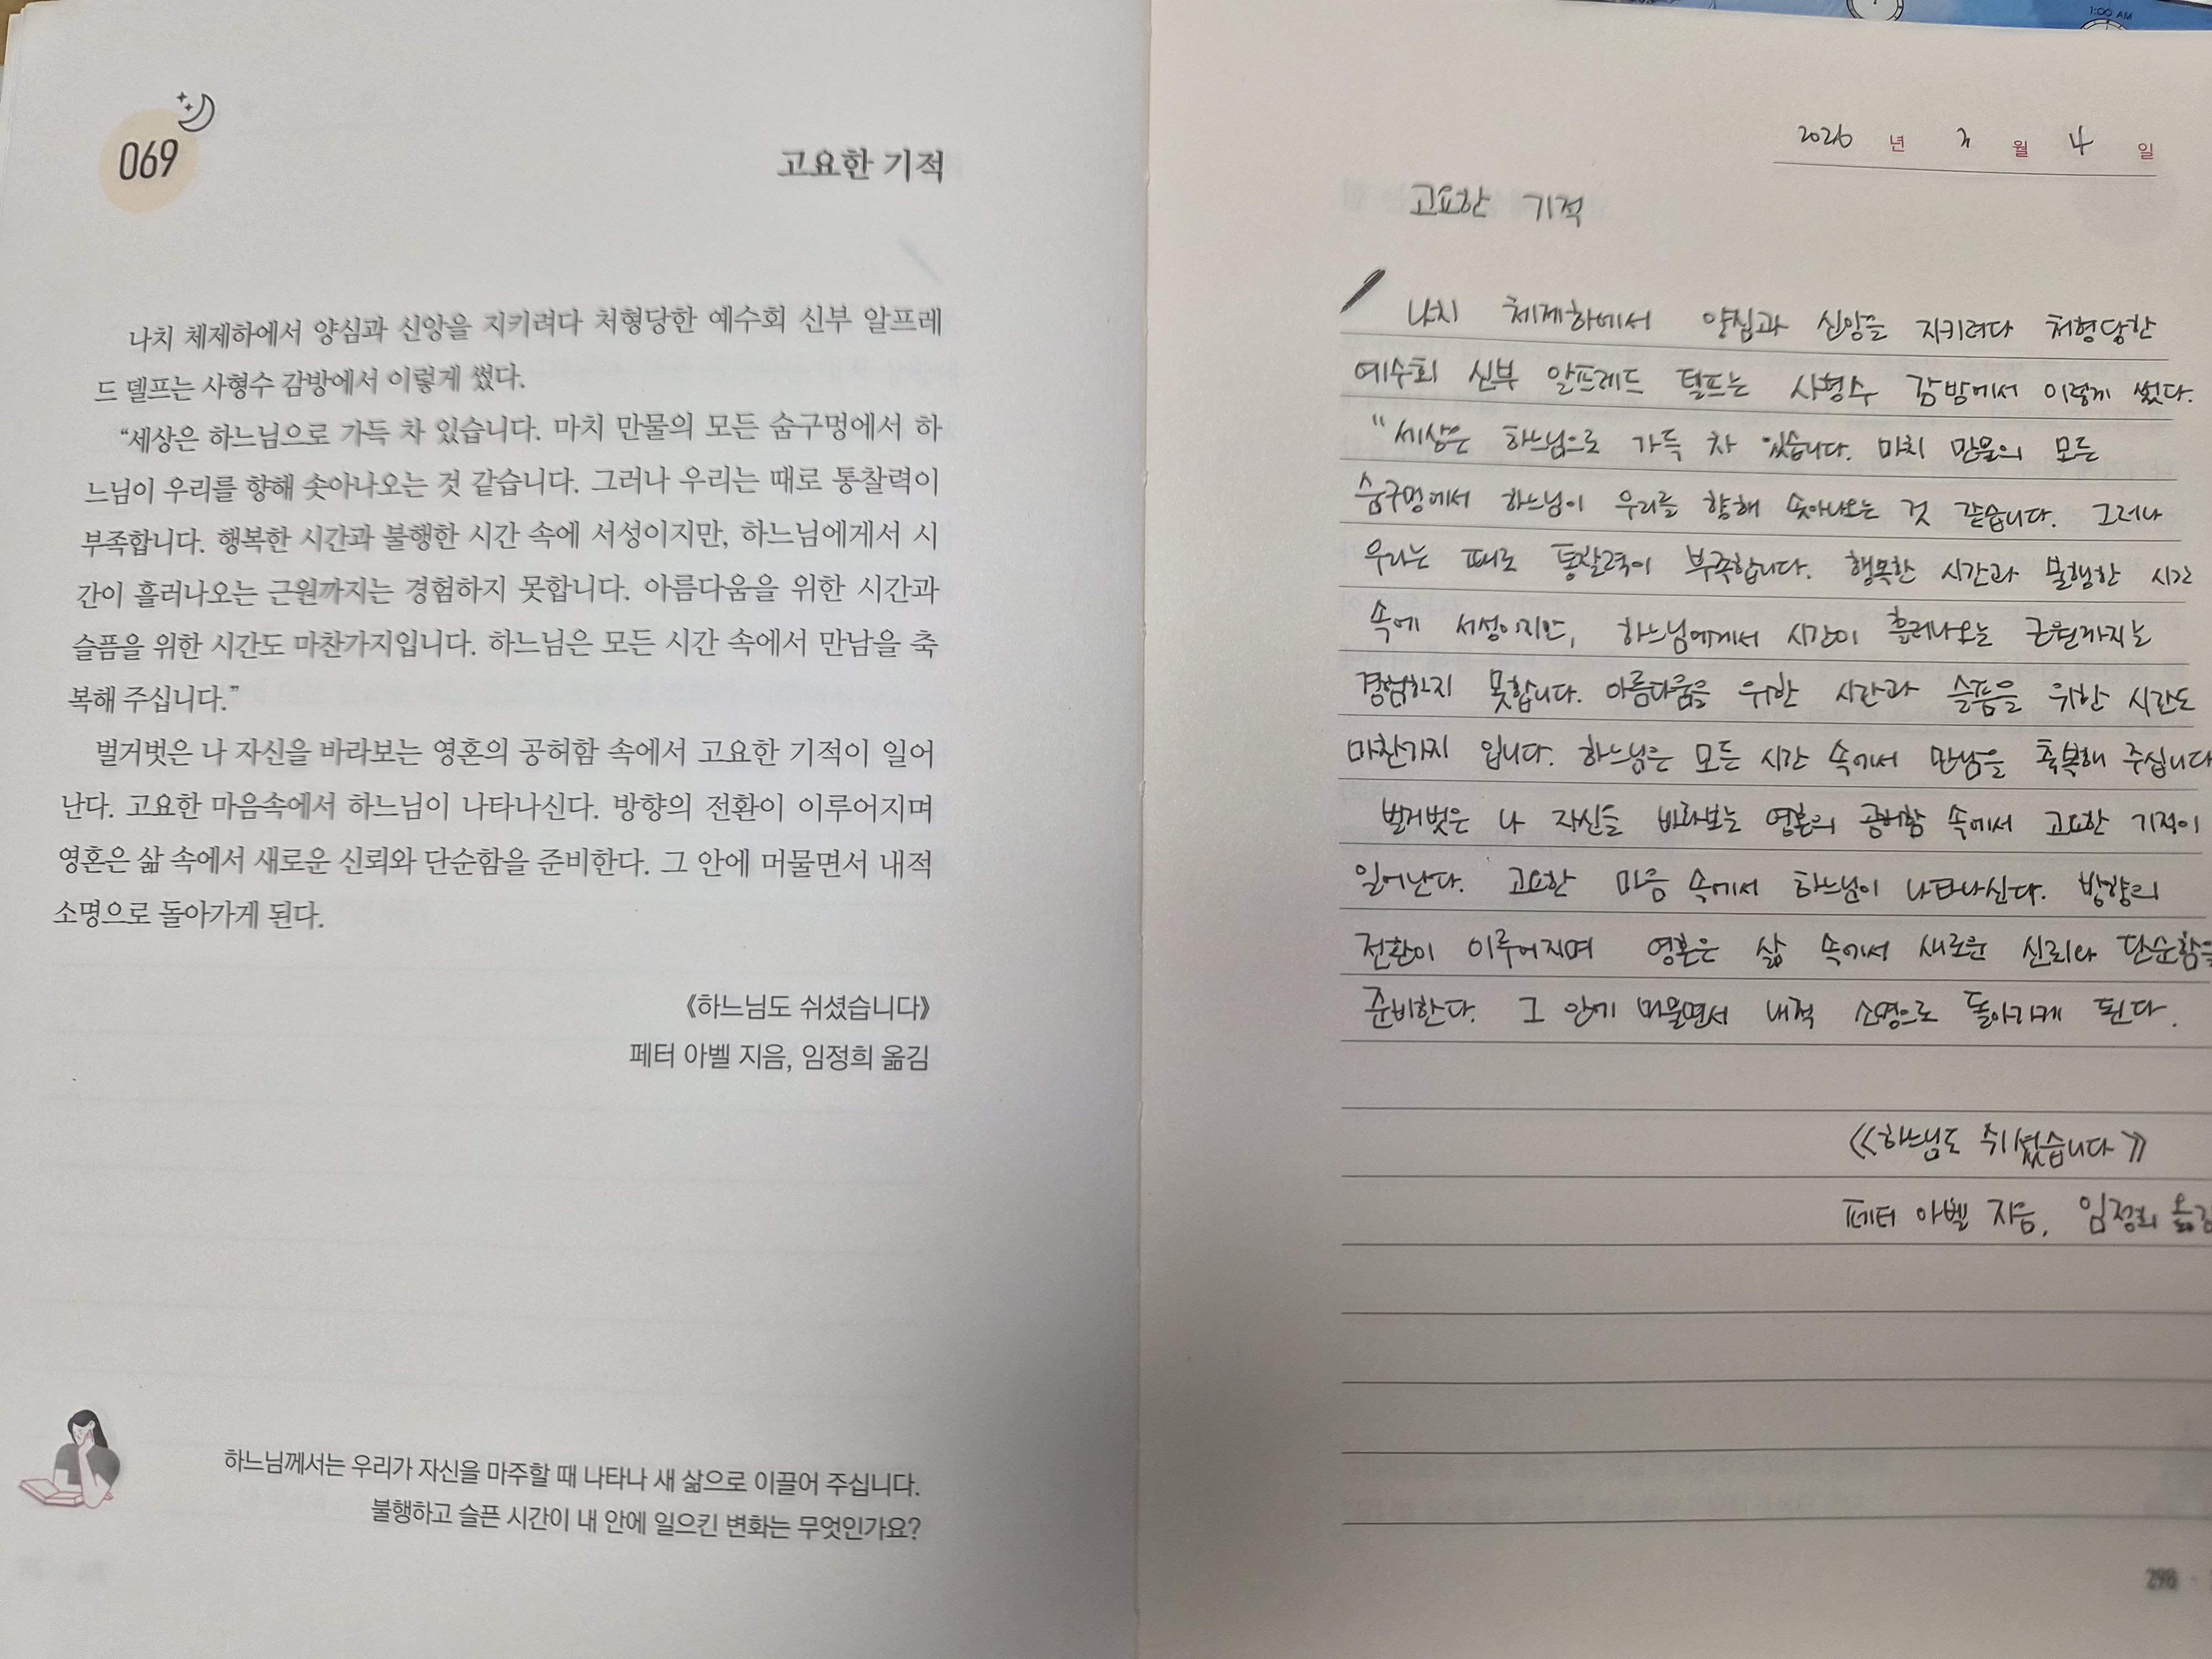 069
고요한 기적
나치 체제하에서 양심과 신앙을 지키려다 처형당한 예수회 신부 알프레
드 델프는 사형수 감방에서 이렇게 썼다.
“세상은 하느님으로 가득 차 있습니다. 마치 만물의 모든 숨구멍에서 하
느님이 우리를 향해 솟아나오는 것 같습니다. 그러나 우리는 때로 통찰력이
부족합니다. 행복한 시간과 불행한 시간 속에 서성이지만, 하느님에게서 시
간이 흘러나오는 근원까지는 경험하지 못합니다. 아름다움을 위한 시간과
슬픔을 위한 시간도 마찬가지입니다. 하느님은 모든 시간 속에서 만남을 축
복해 주십니다.”
벌거벗은 나 자신을 바라보는 영혼의 공허함 속에서 고요한 기적이 일어
난다. 고요한 마음속에서 하느님이 나타나신다. 방향의 전환이 이루어지며
영혼은 삶 속에서 새로운 신뢰와 단순함을 준비한다. 그 안에 머물면서 내적
소명으로 돌아가게 된다.
《하느님도 쉬셨습니다》
페터 아벨 지음, 임정희 옮김
하느님께서는 우리가 자신을 마주할 때 나타나 새 삶으로 이끌어 주십니다.
불행하고 슬픈 시간이 내 안에 일으킨 변화는 무엇인가요?
1:00 AM
2026 년 3 월 4 일
고요한 기적
나치 체제하에서 양심과 신앙을 지키려다 처형당한
예수회 신부 알프레드 델프는 사형수 감방에서 이렇게 썼다.
"세상은 하느님으로 가득 차 있습니다. 마치 만물의 모든
숨구멍에서 하느님이 우리를 향해 솟아나오는 것 같습니다. 그러나
우리는 때로 통찰력이 부족합니다. 행복한 시간과 불행한 시간
속에 서성이지만, 하느님에게서 시간이 흘러나오는 근원까지는
경험하지 못합니다. 아름다움을 위한 시간과 슬픔을 위한 시간도
마찬가지 입니다. 하느님은 모든 시간 속에서 만남을 축복해 주십니다
벌거벗은 나 자신을 바라보는 영혼의 공허함 속에서 고요한 기적이
일어난다. 고요한 마음 속에서 하느님이 나타나신다. 방향의
전환이 이루어지며 영혼은 삶 속에서 새로운 신뢰와 단순함을
준비한다. 그 안에 머물면서 내적 소명으로 돌아가게 된다.
《하느님도 쉬셨습니다》
페터 아벨 지음, 임정희 옮김